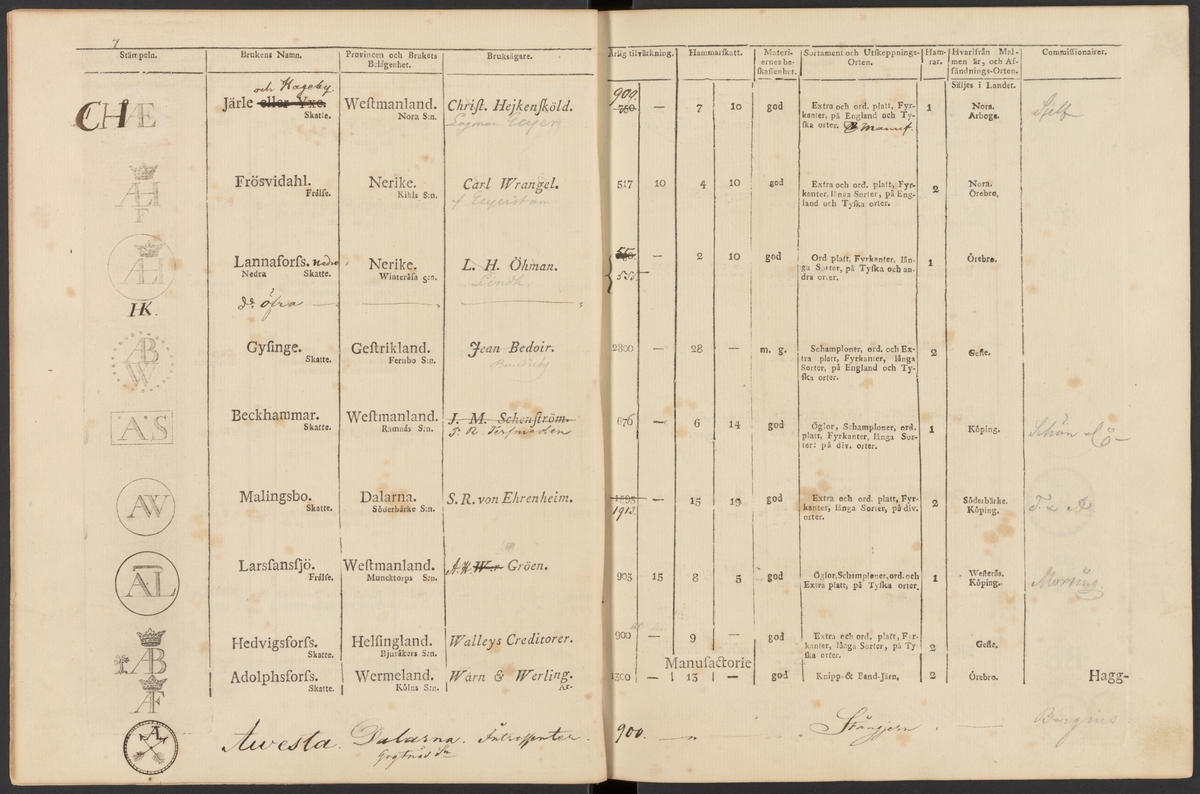 7
Stämpeln. Brukens Namn. Provincen och Brukets Belägenhet. Bruksägare. Årlig tilvärkning. Hammarſkatt. Materiernes beſkaffenhet. Sortament och Utſkeppnings-Orten. Hamrar. Hvarifrån Malmen är, och Afſändnings-Orten. Commiſſionairer.
Säljes i Landet.
och Hageby 900
CHÆ Järle eller Yxe. Weſtmanland. Chriſt. Hejkenſköld. 750 — 7 10 god Extra och ord. platt, Fyr- 1 Nora. Sjelf
Skatte. Nora S:n. kanter, på England och Ty- Arboga.
ſka orter. Manuf
Frösvidahl. Nerike. Carl Wrangel. 517 10 4 10 god Extra och ord. platt, Fyr- 2 Nora.
Frälſe. Kihls S:n. kanter, långa Sorter, på Eng- Örebro.
F land och Tyſka orter.
Lannaforſs. Nedre Nerike. L. H. Öhman. — 2 10 god Ord platt, Fyrkanter, lån- 1 Örebro.
Nedra Skatte. Winteråſa S:n. Lindh. 555 ga Sorter, på Tyſka och an-
dra orter.
IK. do öfra
AB W Gyſinge. Geſtrikland. Jean Bedoir. 2800 — 28 — m. g. Schamploner, ord. och Ex- 2 Gefle.
Skatte. Fernbo S:n. tra platt, Fyrkanter, långa
Sorter, på England och Ty-
ſka orter.
ÄS Beckhammar. Weſtmanland. J. M. Schenſtröm. 676 — 6 14 god Öglor, Schamploner, ord. 1 Köping. Schön & Co
Skatte. Ramnäs S:n. platt, Fyrkanter, långa Sor-
ter: på div. orter.
AW Malingsbo. Dalarna. S. R. von Ehrenheim. 1595 — 15 19 god Extra och ord. platt, Fyr- 2 Söderbärke.
Skatte. Söderbärke S:n. 1912 kanter, långa Sorter, på div. Köping.
orter.
AL Larſsansſjö. Weſtmanland. A. H. W:r Gröen. 903 15 8 5 god Öglor, Schamploner, ord. och 1 Weſterås.
Frälſe. Muncktorps S:n. Extra platt, på Tyſka orter. Köping.
AB Hedvigsforſs. Helſingland. Walleys Creditorer. 900 — 9 — god Extra och ord. platt, Fyr- 2 Gefle.
Skatte. Bjuråkers S:n. kanter, långa Sorter, på Ty
ſka orter.
Manufactorie
AF Adolphsforſs. Wermeland. Wärn & Werling. 1300 — 13 — god Knipp- & Band-Järn. 2 Örebro. Hagg-
Skatte. Kölns S:n. Ar-
A Awesta. Dalarna. Intressenter. 900. — Stångjern. — Bergius